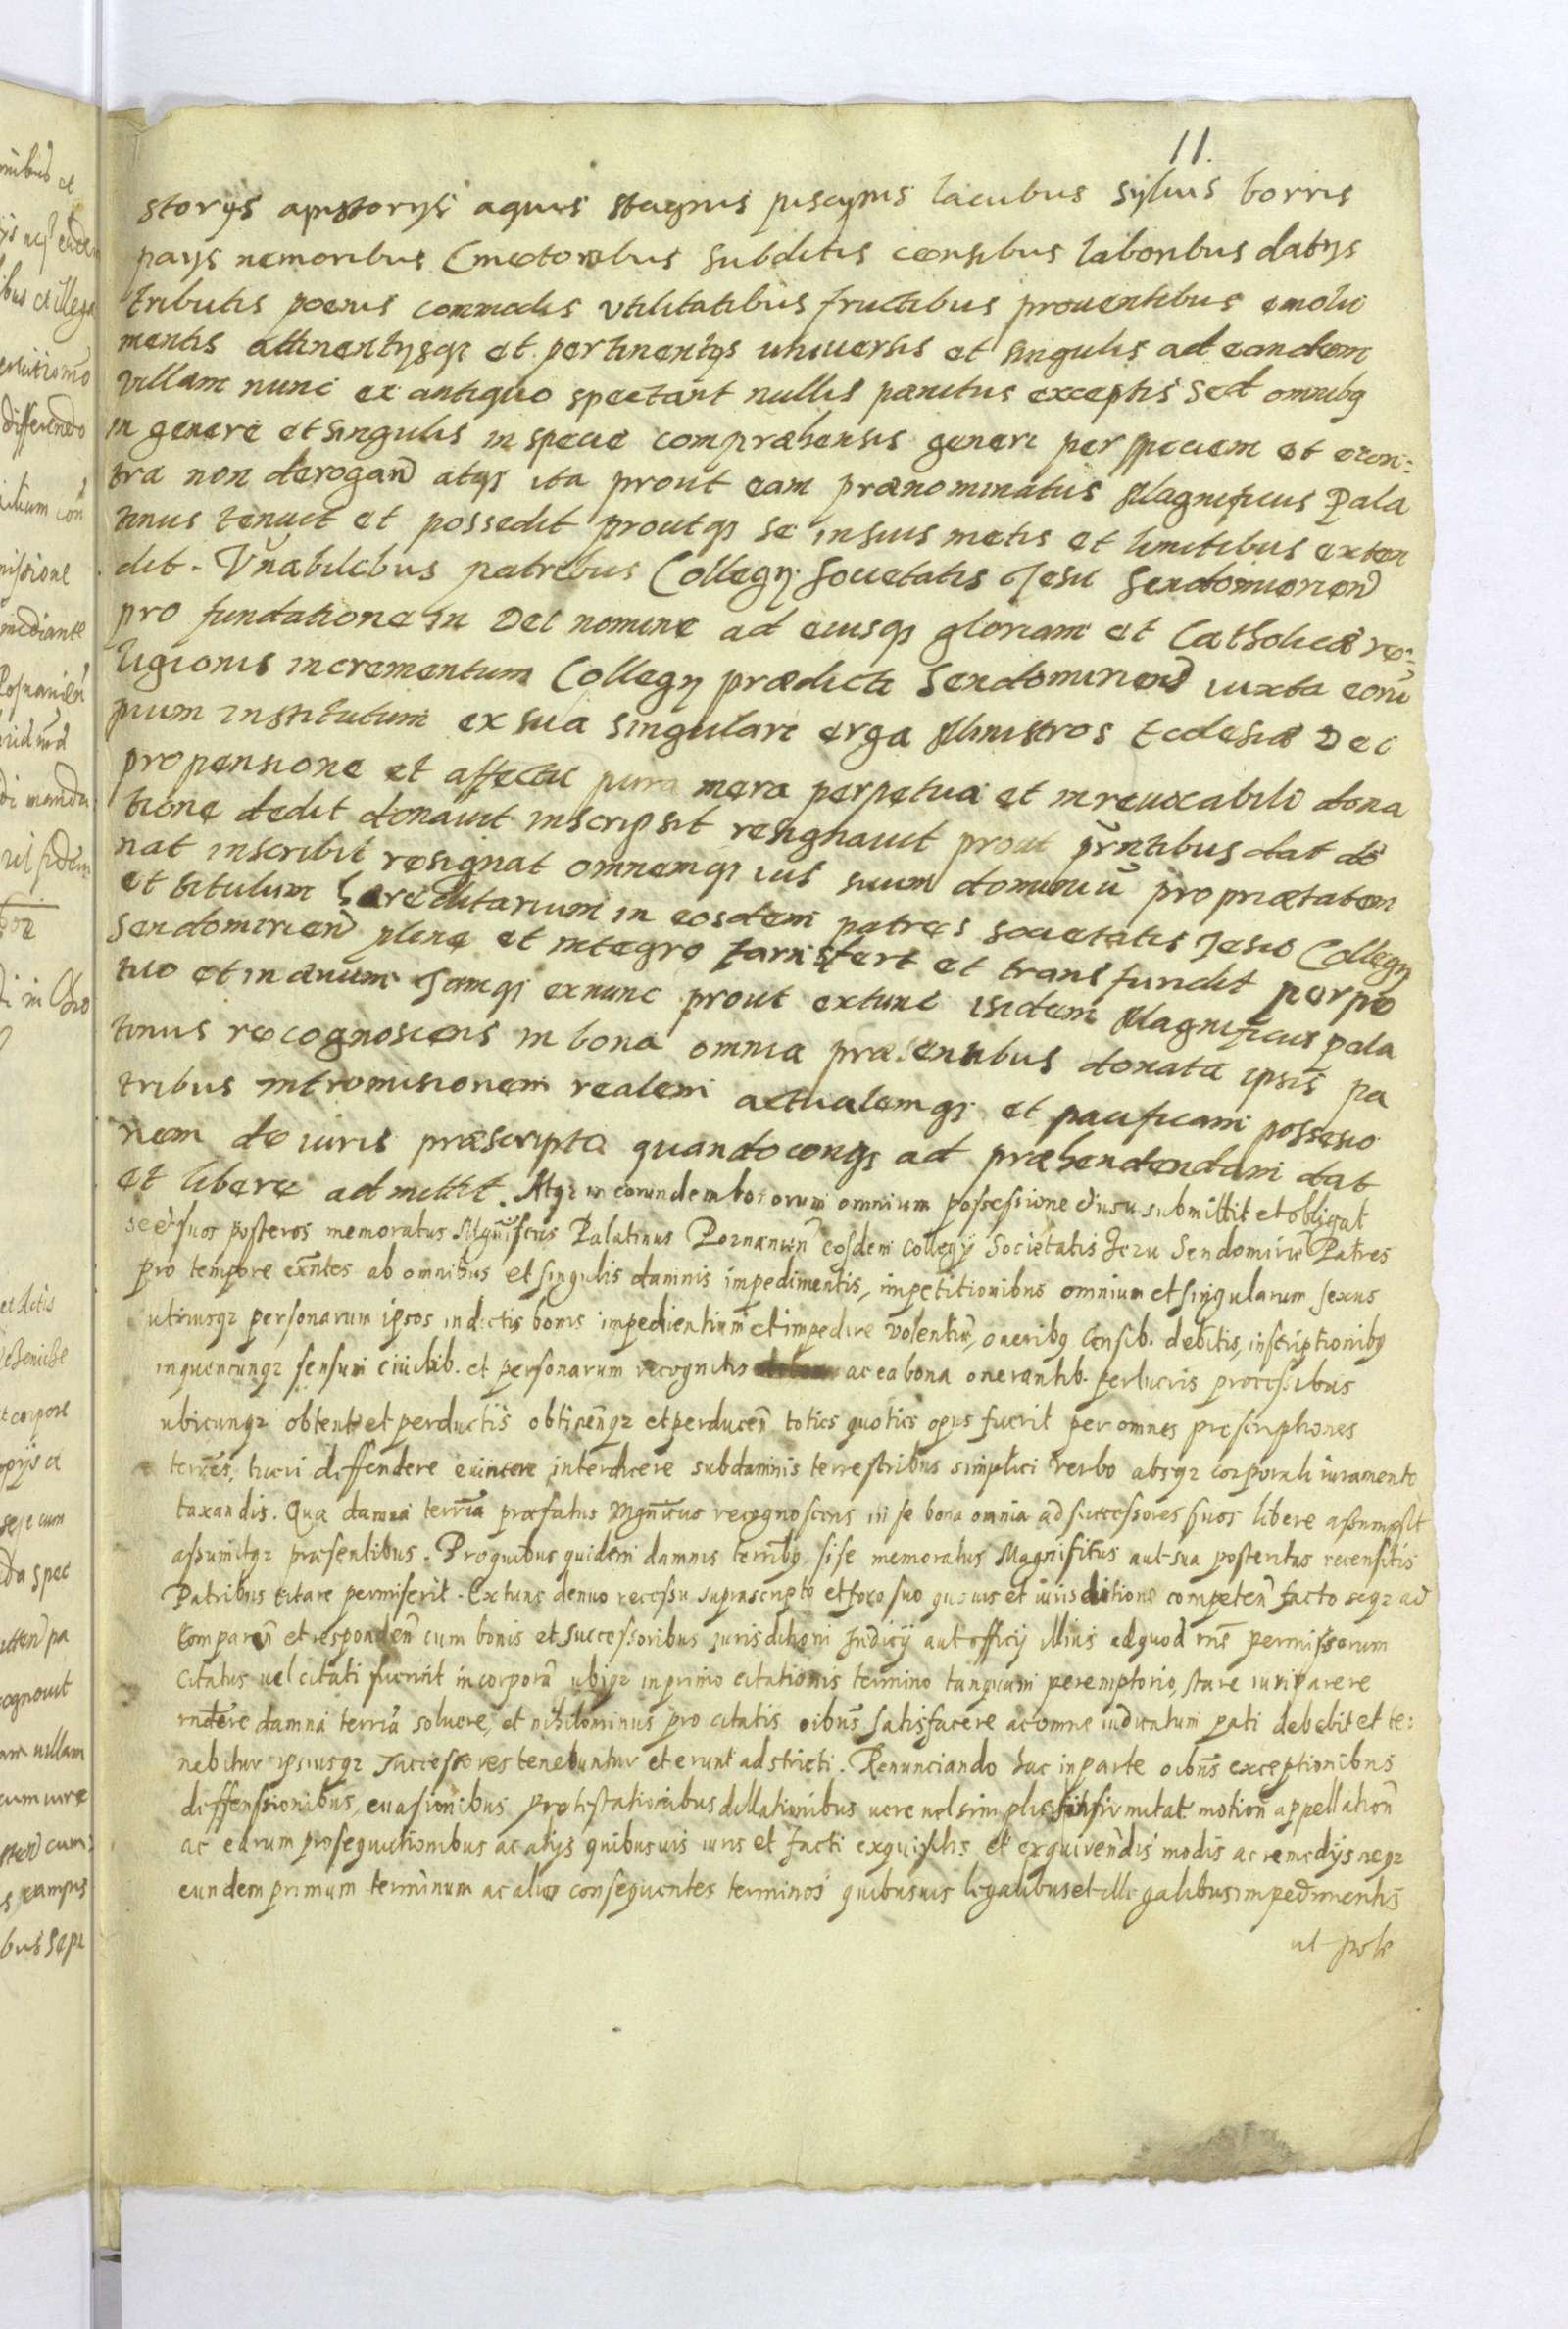 11.
storys apistorys aquis stagnis piscynis lacubus syluis borris
pays nemoribus Cmetonibus subditis censibus laboribus datys
tributis poenis commodis vtilitatibus fructibus prouentibus emolu
mentis attinentysq; et pertinentys uniuersis et singulis ad eandem
villam nunc ex antiquo spectant nullis penitus exceptis sed omnibq
in genere et singulis in specie compræhensis generi per speciem et econ:
tra non derogand atq; ita prout eam prænominatus Magnificus Pala
tinus tenuit et possedit proutq; se in suis metis et limitibus exten
dit. Vnabilibus patribus Collegy Societatis Jesu Sendomirien
pro fundatione in Dei nomine ad eiusq; gloriam et Catholicæ re:
ligionis incrementum Collegy prædicti Sendomirien iuxta eorū
pium institutum ex sua singulari erga Ministros Ecclesiæ Dei
propensione et affectu pura mera perpetua et inreuocabili dona
tione dedit donauit inscripsit resignauit prout pr̃ntibus dat do
nat inscribit resignat omnemq; ius suum dominiū proprietatem
et titulum hæreditarium in eosdem patres societatis Jesu Collegy
Sendomirien plene et integre tarnsfert et transfundit perpe
tuo et in æuum Jamq; exnunc prout extunc isdem Magnificus pala
tinus recognoscens in bona omnia præsentibus donata ipsis pa
tribus intromisionem realem actualemq; et pacificam possesio
nem de iuris præscripto quandocunq; ad præhendendam dat
et libere admittit. Atqz in eorundem bonorum omnium possessione eiusu submittit et obligat
se et suos posteros memoratus Magnificus Palatinus Poznanien̄ eosdem Collegy Societatis Jezu Sendomirien̄ Patres
pro tempore exn̄tes ab omnibus et singulis damnis impedimentis, impetitionibus omnium et singularum sexus
utriusqz personarum ipsos in dictis bonis impedientium et impedire volentiū, oneribq Censib. debitis, inscriptionibq
inquencunqz sensum ciuilib. et personarum recognitis ac ea bona onerantib. perlucris processibus
ubicunqz obtentis et perductis obtinen̄qz et perducen̄ toties quoties opus fuerit per omnes prescriptiones
terr̄es, tueri deffendere euincere interdicere sub damnis terrestribus simplici verbo absqz corporali iuramento
taxandis. Qua damna terr̄ia præfatus Mgn̄icus recognoscens in se bona omnia ad successores suos libere assumpsit
assumitqz præsentibus. Pro quibus quidem damnis terribq si se memoratus Magnificus aut sua posteritas recensitis
Patribus citare permiserit. Extunc denuo recessu suprascripto et foro suo quouis et iurisditione competen̄ facto seqz ad
comparen̄ et responden̄ cum bonis et successoribus jurisditioni Judicij aut officij illius ad quod rn̄e permissorum
citatus uel citati fuerint in corporā ubiqz in primo citationis termino tanquam peremptorio, stare iuri parere
rn̄dere damna terria soluere, et nihilominus pro citatis oibus satisfacere ac omne iudicatum pati debebit et te:
nebitur ipsiusqz successores tenebuntur et erunt adstricti. Renunciando hac in parte oibus exceptionibus
deffenssionibus, euasionibus protestationibus dillationibus uere uel simplici infirmitat. motion̄ appellation̄
ac earum prosequutionibus ac alijs quibusuis iuris et facti exquisitis et exquirendis modis ac remedijs neqz
eundem primum terminum ac alios consequentes terminos quibusuis legalibus et illegalibus impedimentis
ut pote